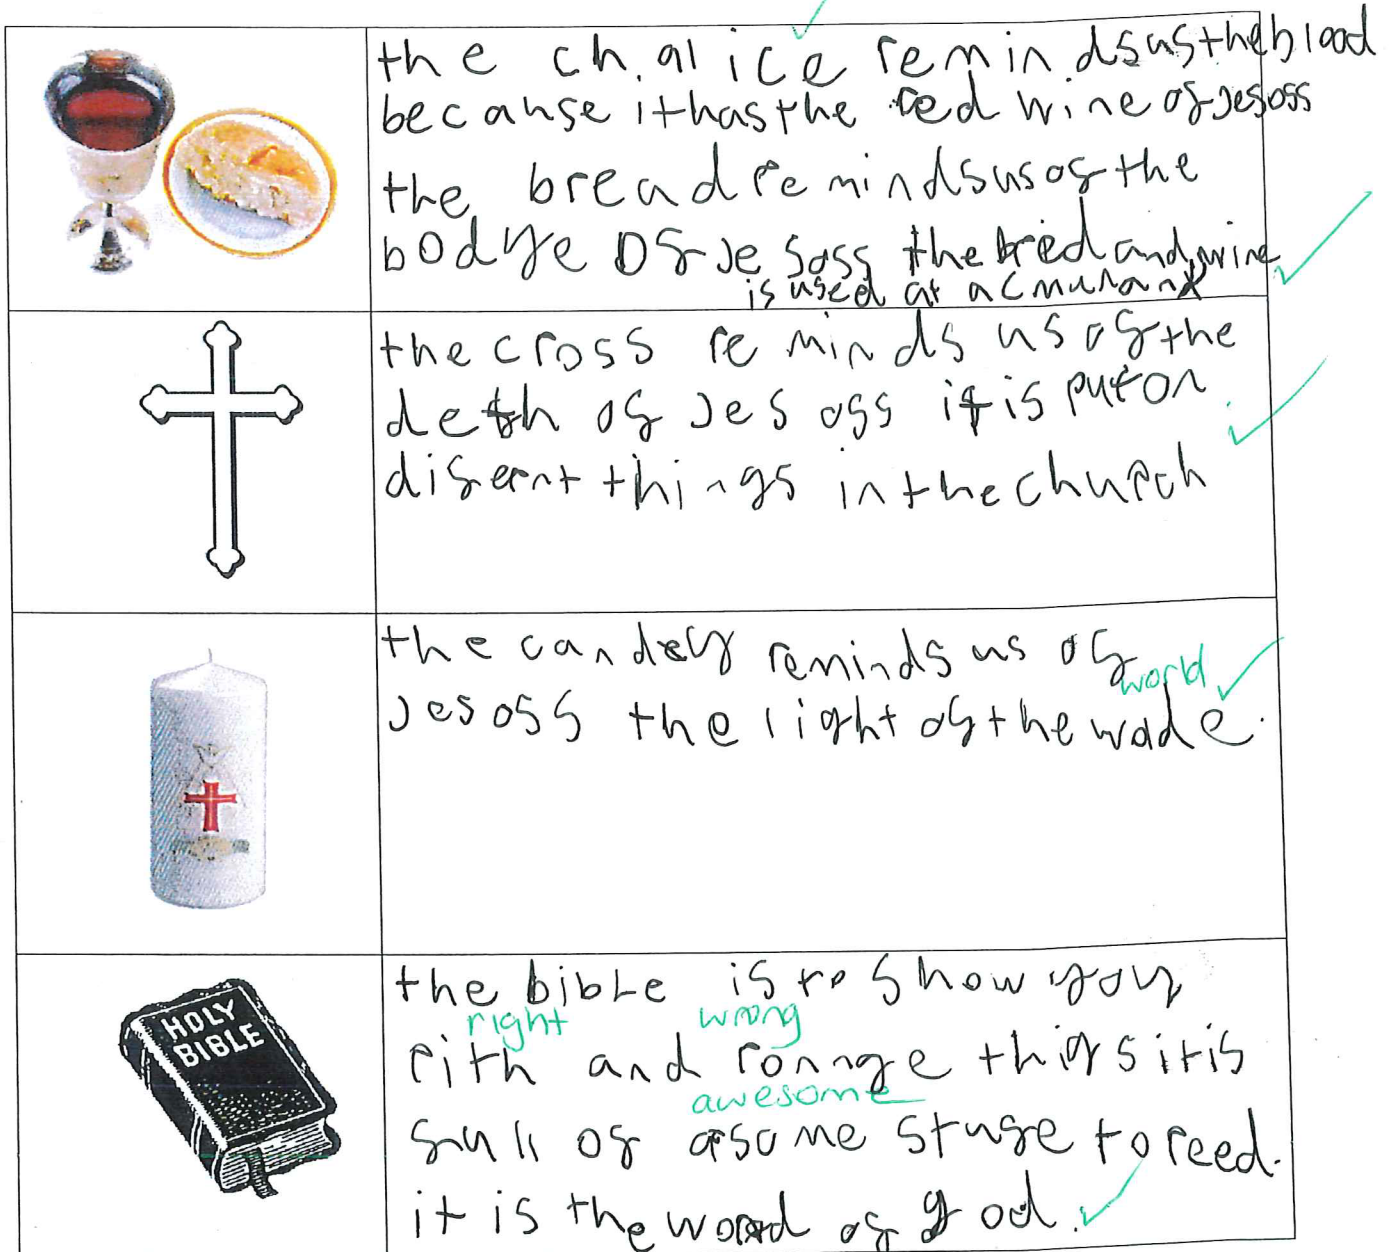 the chalice reminds us the blood
because it has the red wine of jesoss
the bread reminds us of the
bodye of jesoss the bred and wine
is used at a
the cross reminds us of the
deth of jesoss it is put on
difernt things in the church
the candely reminds us of
world
jesoss the light of the wade.
HOLY
BIBLE
the bible is to show you
right wrong
rith and ronnge thigs it is
awesome
full of asome stufe to reed.
it is the word of god.